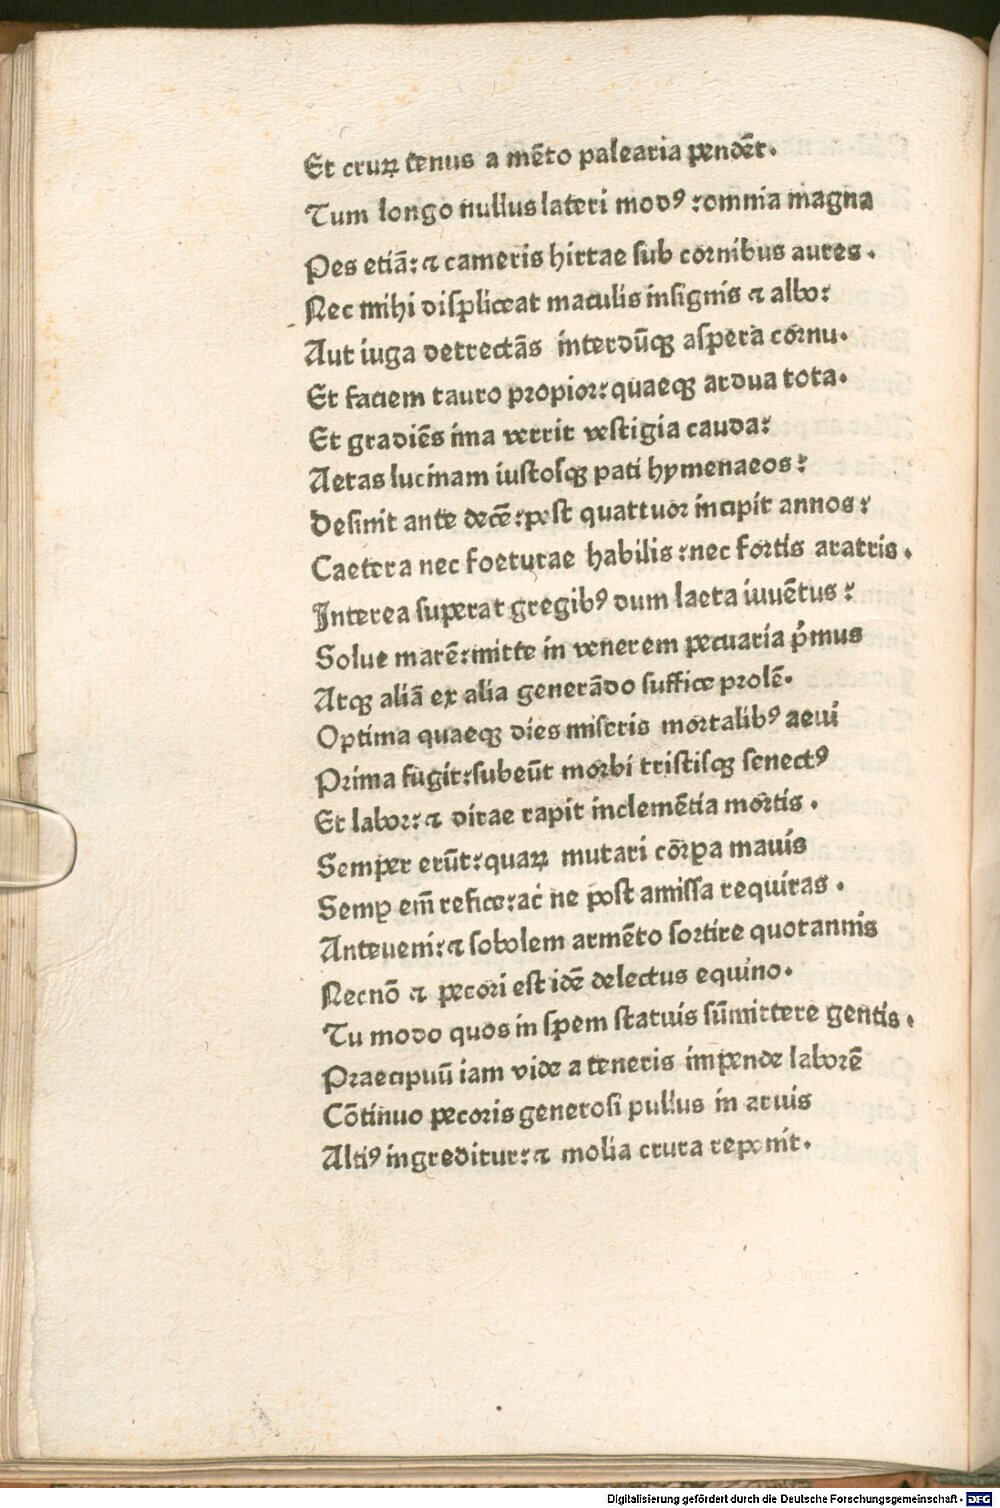 Et cruꝝ tenus a mēto palearia pendēt.
Tum longo nullus lateri modꝰ: omnia magna
Pes etiā: ⁊ cameris hirtae sub cornibus aures.
Nec mihi displiceat maculis insignis ⁊ albo:
Aut iuga detrectās interdūqꝫ aspera cornu.
Et faciem tauro propior: quaeqꝫ ardua tota.
Et gradiēs ima verrit vestigia cauda:
Aetas lucinam iustosqꝫ pati hymenaeos:
Desinit ante decē: post quattuor incipit annos:
Caetera nec foeturae habilis: nec fortis aratris.
Interea superat gregibꝰ dum laeta iuuētus:
Solue marē: mitte in venerem pecuaria p̄mus
Atqꝫ aliā ex alia generādo suffice prolē.
Optima quaeqꝫ dies miseris mortalibꝰ aeui
Prima fugit: subeūt morbi tristisqꝫ senectꝰ
Et labor: ⁊ dirae rapit inclemētia mortis.
Semper erūt: quaꝝ mutari cōrꝑa mauis
Semꝑ em̄ refice: ac ne post amissa requiras.
Anteueni: ⁊ sobolem armēto sortire quotannis
Necnō ⁊ pecori est idē delectus equino.
Tu modo quos in spem statuis sūmittere gentis.
Praecipuū iam vide a teneris impende laborē
Cōtinuo pecoris generosi pullus in aruis
Altiꝰ ingreditur: ⁊ molia crura reponit.
Digitalisierung gefördert durch die Deutsche Forschungsgemeinschaft - DFG